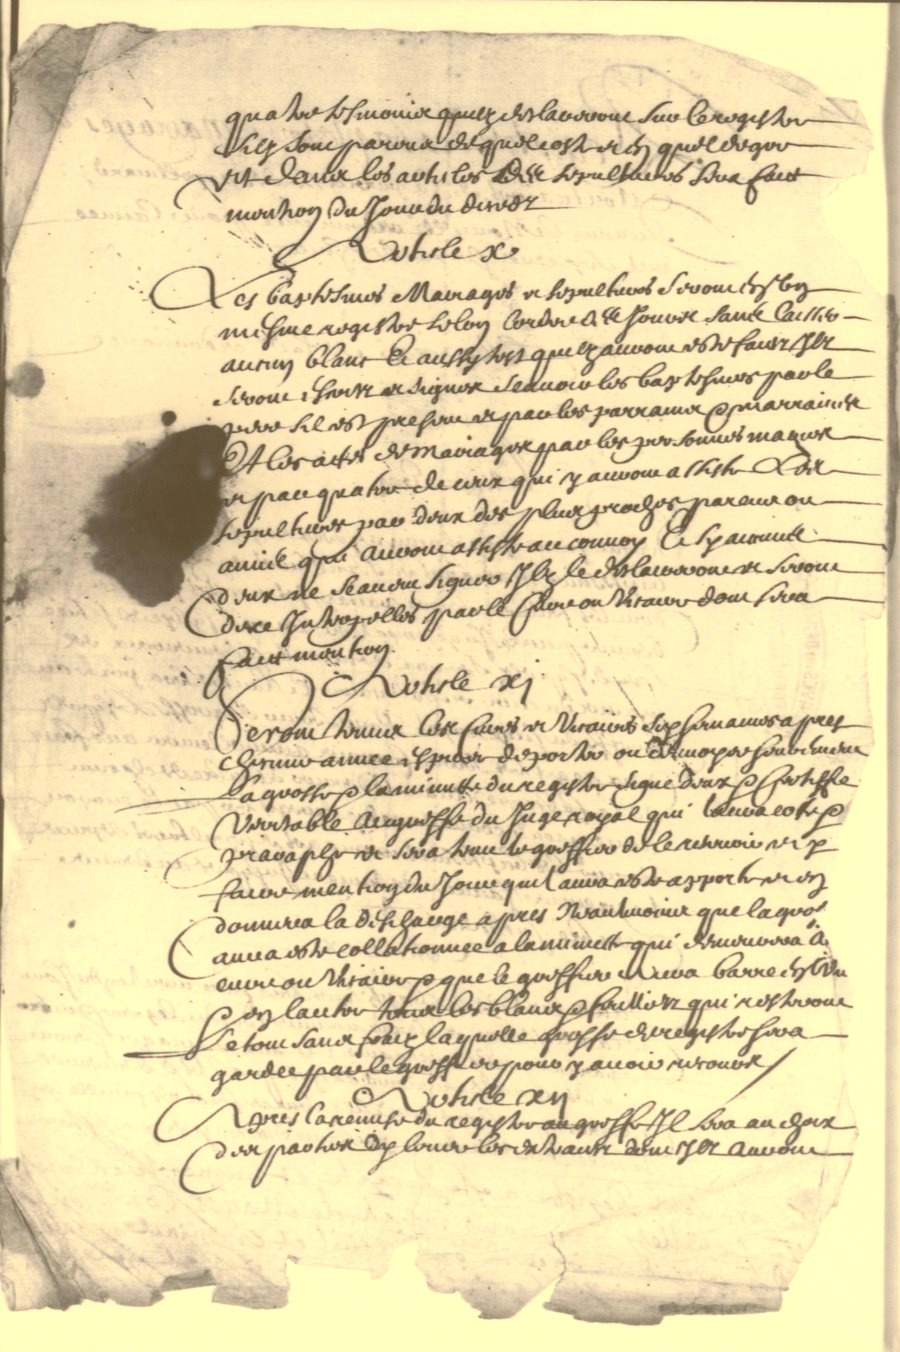 quatre tesmoins quilz declareront sur le registre
silz sont parens de quel costé et en quel degré
et dans les articles des sepultures sera faict
mention du jour du decedz
Article X
Les baptesmes Mariages et sepultures seront en un
mesme registre selon l'ordre des jours sans laisser
aucun blanc Et aussytost quilz auront esté faitz ilz
seront escritz et signez scavoir les baptesmes par le
pere sil est present et par les parrains & marraines
Et les actes de Mariages par les personnes mariees
et par quatre de ceux qui y auront assisté Les
sepultures par deux des plus proches parens ou
amis qui auront assisté au convoy Et sy aucuns
d'eux ne scavent signer ilz le declareront et seront
de ce interpellés par le Curé ou Vicaire dont sera
faict mention
Article XI
Seront tenus les Curés et Vicaires six semaines apres
chacune annee expiree de porter ou envoyer seurement
La grosse & la minutte du registre signé d'eux & certiffié
veritable au greffe du Juge royal qui l'aura cotté &
paraphé et sera tenu le greffier de le recevoir et y
faire mention du jour quil aura esté apporté et en
donnera la descharge apres neantmoins que la grosse
aura esté collationnee a la minutte qui demeurera au
curé ou Vicaire & que le greffier aura barré en l'un
& en l'autre tous les blancs & feuilletz qui resteront
Le tout sans frais laquelle grosse de registre sera
gardee par le greffier pour y avoir recours
Article XII
Apres la remise du registre au greffe Il sera au choix
des parties d'y lever les extraitz dont ilz auront